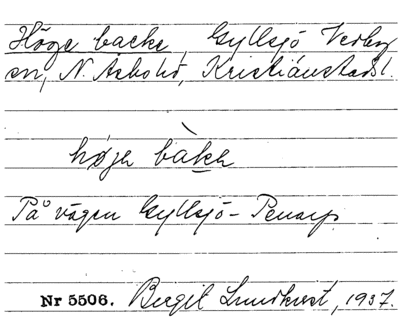 Höge backe, Gyllsjö Verby
sn, N. Åsbohd, Kristianstads l.
højə bàkə
På vägen Gyllsjö - Penarp.
Nr 5506. Birgit Lundkvist, 1937.